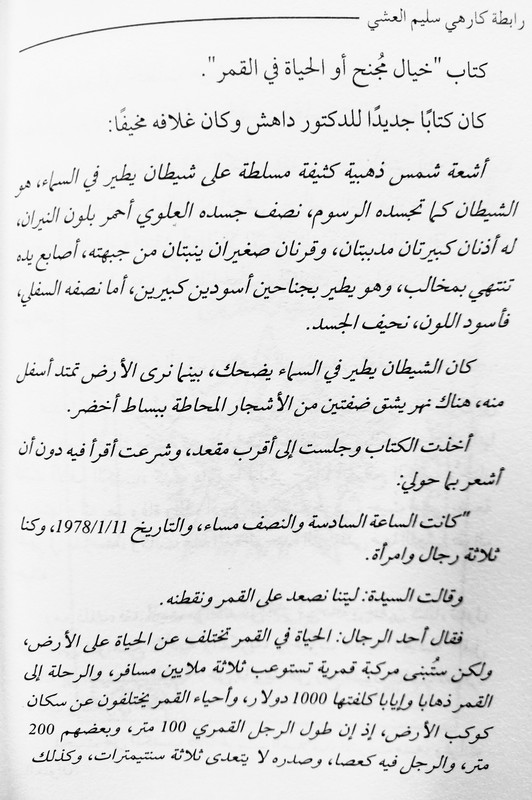 رابطة كارهي سليم العشي
كتاب "خيال مُجنح أو الحياة في القمر".
كان كتابًا جديدًا للدكتور داهش وكان غلافه مخيفًا:
أشعة شمس ذهبية كثيفة مسلطة على شيطان يطير في السماء، هو
الشيطان كما تجسده الرسوم، نصف جسده العلوي أحمر بلون النيران،
له أذنان كبيرتان مدببتان، وقرنان صغيران ينبتان من جبهته، أصابع يده
تنتهي بمخالب، وهو يطير بجناحين أسودين كبيرين، أما نصفه السفلي،
فأسود اللون، نحيف الجسد.
كان الشيطان يطير في السماء يضحك، بينما نرى الأرض تمتد أسفل
منه، هناك نهر يشق ضفتين من الأشجار المحاطة ببساط أخضر.
أخذت الكتاب وجلست إلى أقرب مقعد، وشرعت أقرأ فيه دون أن
أشعر بما حولي:
"كانت الساعة السادسة والنصف مساء، والتاريخ 1978/1/11، وكنا
ثلاثة رجال وامرأة.
وقالت السيدة: ليتنا نصعد على القمر ونقطنه.
فقال أحد الرجال: الحياة في القمر تختلف عن الحياة على الأرض،
ولكن ستُبنى مركبة قمرية تستوعب ثلاثة ملايين مسافر، والرحلة إلى
القمر ذهابا وإيابا كلفتها 1000 دولار، وأحياء القمر يختلفون عن سكان
كوكب الأرض، إذ إن طول الرجل القمري 100 متر، وبعضهم 200
متر، والرجل فيه كعصا، وصدره لا يتعدى ثلاثة سنتيمترات، وكذلك